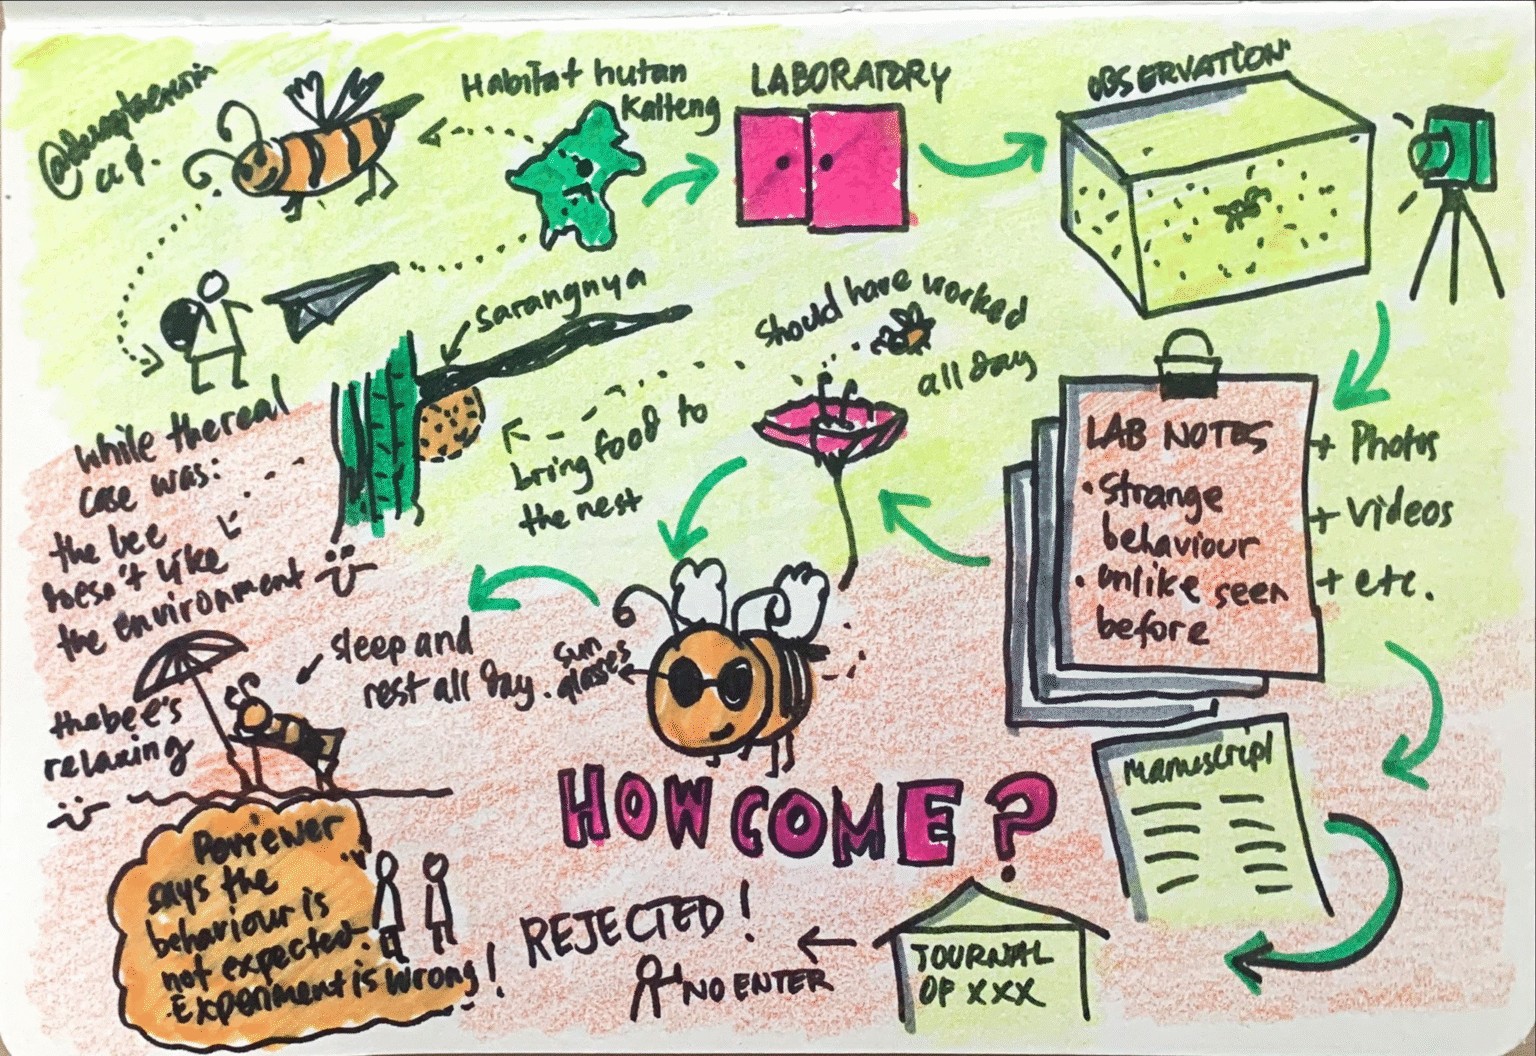 Habitat hutan
Kalteng
LABORATORY
OBSERVATION
sarangnya
should have worked
all day
bring food to
the nest
LAB NOTES
• Strange
behaviour
• unlike seen
before
+ Photos
+ Videos
+ etc.
while thereal
case was:
the bee
doesn't like
the environment
sleep and
rest all day.
sun
glasses
thebee's
relaxing
Manuscript
HOW COME?
JOURNAL
OF XXX
REJECTED!
NO ENTER
Reviewer
says the
behaviour is
not expected.
Experiment is wrong!